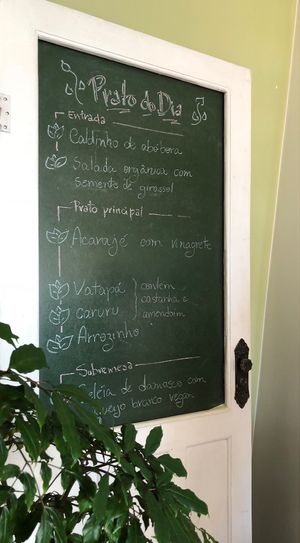 Prato do Dia
Entrada
Caldinho de abóbora
Salada orgânica com
semente de girassol
Prato principal
Acarajé com vinagrete
Vatapá
caruru
contém
castanha e
amendoim
Arrozinho
Sobremesa
Geléia de damasco com
queijo branco vegan